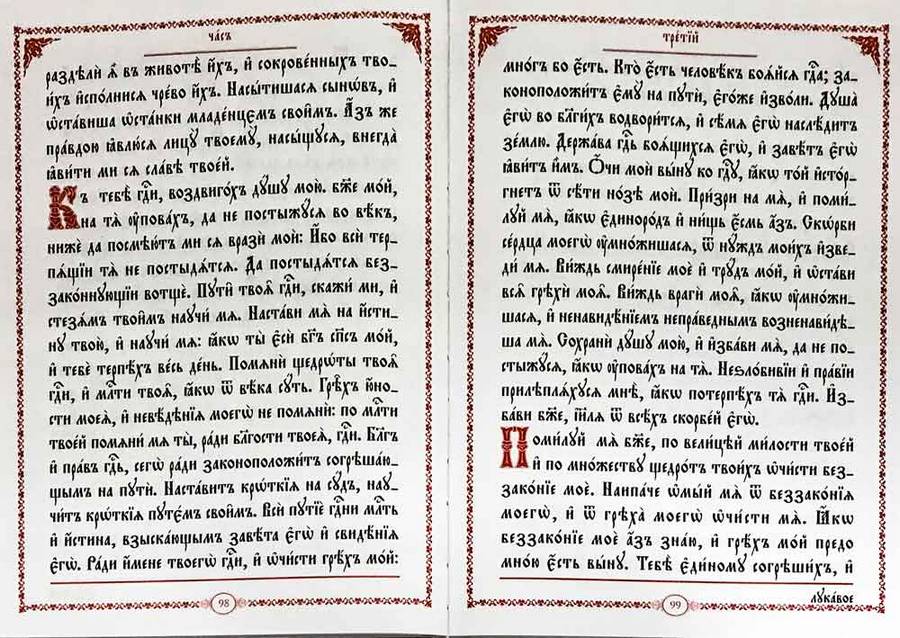 ча́съ
раздѣлѝ ѧ҆̀ въ животѣ̀ и҆́хъ, и҆ сокрове́нныхъ тво-
и́хъ и҆спо́лнисѧ чре́во и҆́хъ. Насы́тишасѧ сынѡ́въ, и҆
ѡ҆ста́виша ѡ҆ста́нки младе́нцємъ свои̑мъ. А҆́зъ же
пра́вдою ꙗ҆влю́сѧ лицꙋ̀ твоемꙋ̀, насы́щꙋсѧ, внегда̀
ꙗ҆ви́ти ми сѧ сла́вѣ твое́й.
Къ тебѣ̀ гд҇и, воздвиго́хъ дꙋ́шꙋ мою̀. бж҃е мо́й,
на тѧ̀ ᲂу҆пова́хъ, да не постыжꙋ́сѧ во вѣ́къ,
нижѐ да посмѣю́т ми сѧ вразѝ моѝ: И҆́бо всѝ тер-
пѧ́щїи тѧ̀ не постыдѧ́тсѧ. Да постыдѧ́тсѧ без-
зако́ннꙋющїи вотщѐ. Пꙋти̑ твоѧ̑ гд҇и, скажи́ ми, и҆
стезѧ́мъ твои̑мъ наꙋчи́ мѧ. Наста́ви мѧ̀ на и҆́сти-
нꙋ твою̀, и҆ наꙋчи́ мѧ: ꙗ҆́кѡ ты̀ є҆сѝ бг҃ъ сп҃съ мо́й,
и҆ тебѐ терпѣ́хъ ве́сь де́нь. Помѧнѝ щедрѡ́ты твоѧ̑
гд҇и, и҆ млⷭ҇ти твоѧ̑, ꙗ҆́кѡ ѿ вѣ́ка сꙋ́ть. Грѣ́хъ ю҆́но-
сти моеѧ̀, и҆ невѣ́дѣнїѧ моегѡ̀ не помѧнѝ: по млⷭ҇ти
твое́й помѧни́ мѧ ты̀, ра́ди бл҃гости твоеѧ̀, гд҇и. Бл҃гъ
и҆ пра́въ гд҇ь, сегѡ̀ ра́ди законоположи́тъ согрѣша́ю-
щымъ на пꙋтѝ. Наста́витъ крѡ́ткїѧ на сꙋ́дъ, наꙋ-
чи́тъ крѡ́ткїѧ пꙋтє́мъ свои̑мъ. Всѝ пꙋтїѐ гд҇ни млⷭ҇ть
и҆ и҆́стина, взыска́ющымъ завѣ́та є҆гѡ̀ и҆ свидѣ́нїѧ
є҆гѡ̀. Ра́ди и҆́мене твоегѡ̀ гд҇и, и҆ ѡ҆чи́сти грѣ́хъ мо́й:
98
тре́тїй
мно́гъ бо є҆́сть. Кто̀ є҆́сть человѣ́къ боѧ́йсѧ гд҇а; за-
коноположи́тъ є҆мꙋ̀ на пꙋтѝ, є҆го́же и҆зво́ли. Дꙋша̀
є҆гѡ̀ во бл҃ги́хъ водвори́тсѧ, и҆ сѣ́мѧ є҆гѡ̀ наслѣ́дитъ
зе́млю. Держа́ва гд҇ь боѧ́щихсѧ є҆гѡ̀, и҆ завѣ́тъ є҆гѡ̀
ꙗ҆ви́тъ и҆̀мъ. Ѻ҆́чи моѝ вы́нꙋ ко гд҇ꙋ, ꙗ҆́кѡ то́й и҆сто́р-
гнетъ ѿ сѣ́ти но́зѣ моѝ. При́зри на мѧ̀, и҆ поми́-
лꙋй мѧ̀, ꙗ҆́кѡ є҆диноро́дъ и҆ ни́щь є҆́смь а҆́зъ. Скѡ́рби
се́рдца моегѡ̀ ᲂу҆мно́жишасѧ, ѿ нꙋ́ждъ мои́хъ и҆зве-
ди́ мѧ. Ви́ждь смире́нїе моѐ и҆ трꙋ́дъ мо́й, и҆ ѡ҆ста́ви
всѧ̑ грѣхѝ моѧ̑. Ви́ждь врагѝ моѧ̑, ꙗ҆́кѡ ᲂу҆мно́жи-
шасѧ, и҆ ненавидѣ́нїемъ непра́веднымъ возненави́дѣ-
ша мѧ̀. Сохранѝ дꙋ́шꙋ мою̀, и҆ и҆зба́ви мѧ̀, да не по-
стыжꙋ́сѧ, ꙗ҆́кѡ ᲂу҆пова́хъ на тѧ̀. Неѕло́бивїи и҆ пра́вїи
прилѣплѧ́хꙋсѧ мнѣ̀, ꙗ҆́кѡ потерпѣ́хъ тѧ̀ гд҇и. И҆з-
ба́ви бж҃е, і҆и҃лѧ ѿ всѣ́хъ скорбе́й є҆гѡ̀.
Поми́лꙋй мѧ̀ бж҃е, по вели́цѣй ми́лости твое́й
и҆ по мно́жествꙋ щедро́тъ твои́хъ ѡ҆чи́сти без-
зако́нїе моѐ. Наипа́че ѡ҆мы́й мѧ̀ ѿ беззако́нїѧ
моегѡ̀, и҆ ѿ грѣха̀ моегѡ̀ ѡ҆чи́сти мѧ̀. Ꙗ҆́кѡ
беззако́нїе моѐ а҆́зъ зна́ю, и҆ грѣ́хъ мо́й предо
мно́ю є҆́сть вы́нꙋ. Тебѣ̀ є҆ди́номꙋ согрѣши́хъ, и҆
лꙋка́вое
99